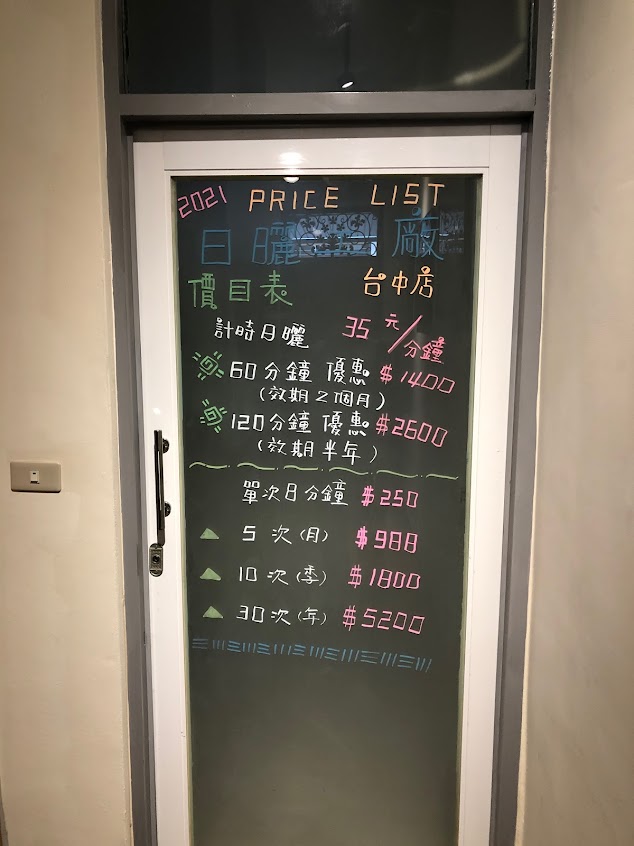 2021 PRICE LIST
日曬工廠
價目表 台中店
計時日曬 35元/分鐘
60分鐘 優惠 $1400
(效期2個月)
120分鐘 優惠 $2600
(效期半年)
單次日分鐘 $250
5次(月) $988
10次(季) $1800
30次(年) $5200